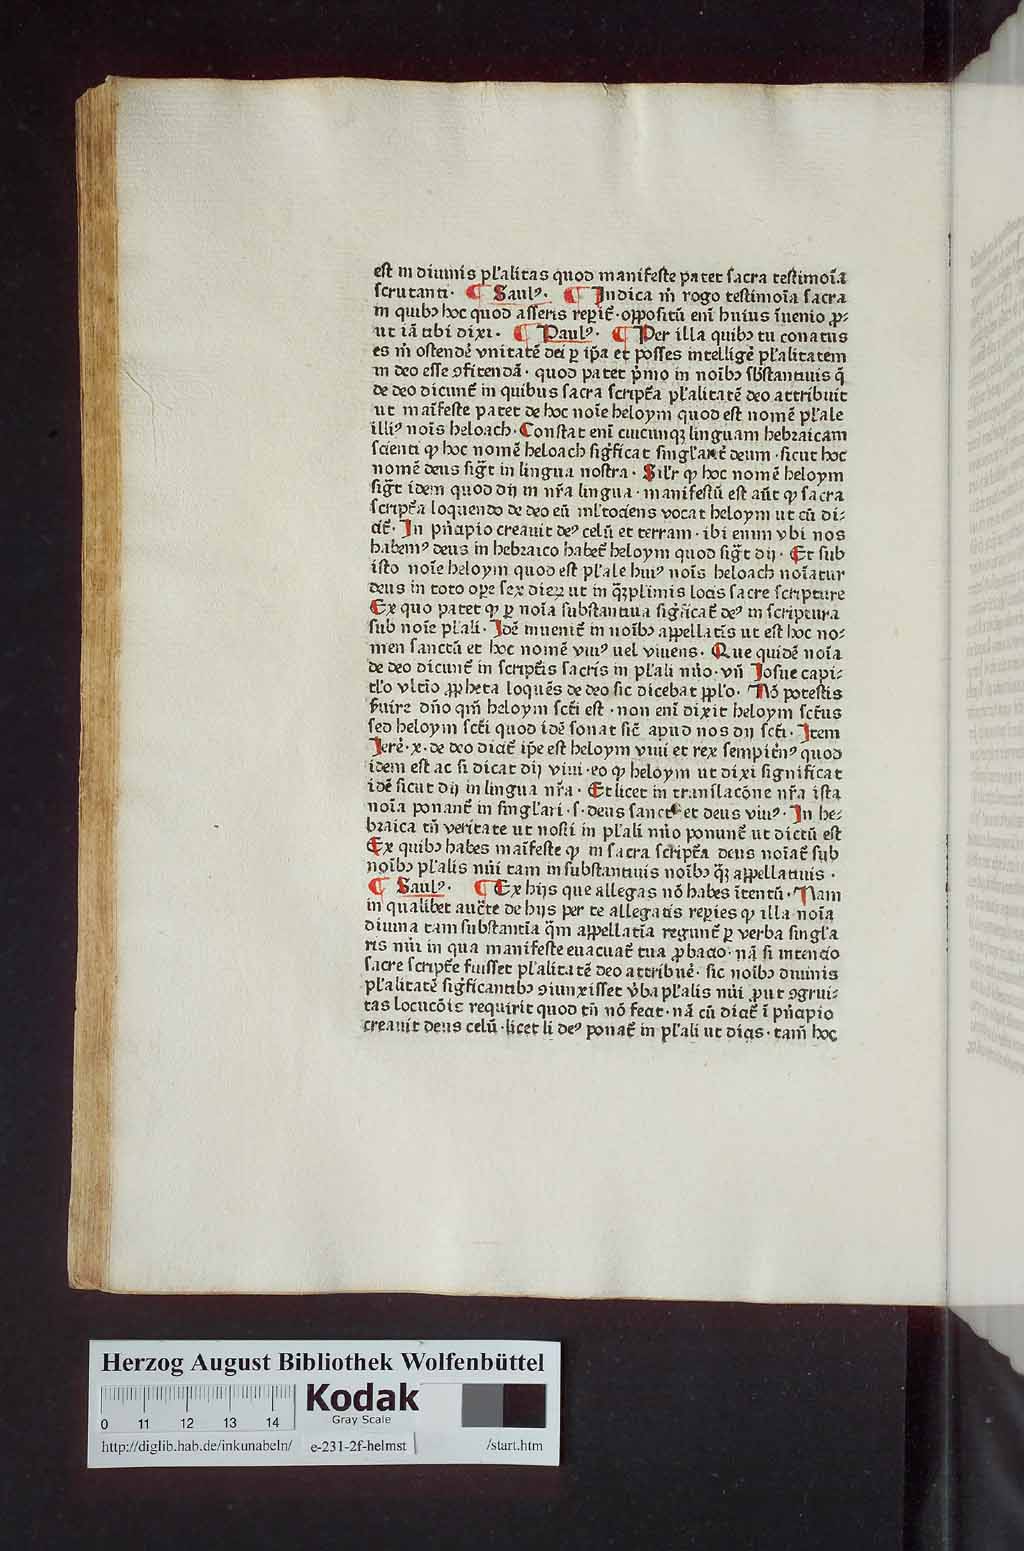 est in diuinis pl'alitas quod manifeste patet sacra testimoīa
scrutanti · ¶ Saulꝰ · ¶ Indica m̄ rogo testimoīa sacra
in quibꝫ hoc quod asseris repīt᷑ · oppositū enī huius īuenio ꝓ-
ut iā tibi dixi · ¶ Paulꝰ · ¶ Per illa quibꝫ tu conatus
es m̄ ostendē vnitatē dei ꝑ ip̄a et posses intelligē pl'alitatem
in deo esse ꝯfitendā · quod patet p̄mo in noībꝫ sb̄stantiuis q̄
de deo dicunt᷑ in quibus sacra script᷑a pl'alitatē deo attribuit
ut maīfeste patet de hoc noīe heloym quod est nomē pl'ale
illiꝰ noīs heloach · Constat enī cuicunqꝫ linguam hebraicam
scienti ꝙ hoc nomē heloach siḡficat singl'arit᷑ deum · sicut hoc
nomē deus siḡt in lingua nostra · Sil'r ꝙ hoc nomē heloym
siḡt idem quod dij in nr̄a lingua · manifestū est aūt ꝙ sacra
script᷑a loquendo de deo eū ml'tociens vocat heloym ut cū di-
cit᷑ · In pn̄cipio creauit deꝰ celū et terram · ibi enim vbi nos
habemꝰ deus in hebraico habet᷑ heloym quod siḡt dij · Et sub
isto noīe heloym quod est pl'ale huiꝰ noīs heloach noīatur
deus in toto oꝑe sex dieꝝ ut in qꝫpl'imis locis sacre scripture
Ex quo patet ꝙ ꝑ noīa substantiua siḡficat᷑ deꝰ in scriptura
sub noīe pl'ali · Idē inuenit᷑ in noībꝫ appellatīs ut est hoc no-
men sanctū et hoc nomē viuꝰ uel viuens · Que quidē noīa
de deo dicunt᷑ in script᷑is sacris in pl'ali nūo · vn̄ Iosue capi-
tl'o vltīo ꝓpheta loquēs de deo sic dicebat ppl'o · Nō potestis
seruire dn̄o qm̄ heloym scti est · non enī dixit heloym sctus
sed heloym scti quod idē sonat sic̄ apud nos dij scti · Item
Ierē · x · de deo dicit᷑ ip̄e est heloym viui et rex sempit᷑nꝰ quod
idem est ac si dicat dij viui · eo ꝙ heloym ut dixi significat
idē sicut dij in lingua nr̄a · Et licet in translacōne nr̄a ista
noīa ponant᷑ in singl'ari · s · deus sanctꝰ et deus viuꝰ · In he-
braica tn̄ veritate ut nosti in pl'ali nūo ponunt᷑ ut dictū est
Ex quibꝫ habes maīfeste ꝙ in sacra script᷑a deus noīat᷑ sub
noībꝫ pl'alis nūi tam in substantiuis noībꝫ qꝫ appellatiuis ·
¶ Saulꝰ · ¶ Ex hijs que allegas nō habes ītentū · Nam
in qualibet auctᷓte de hijs per te allegatis reperies ꝙ illa noīa
diuina tam substantīa qm̄ appellatīa regunt᷑ ꝑ verba singl'a
ris nūi in qua manifeste euacuat᷑ tua ꝓbacio · nā si intencio
sacre script᷑e fuisset pl'alitatē deo attribuē · sic noībꝫ diuinis
pl'alitatē siḡficantibꝫ ꝯiunxisset v̄ba pl'alis nūi ꝓut ꝯgrui-
tas locucōis requirit quod tn̄ nō fecit · nā cū dicit᷑ ī pn̄cipio
creauit deus celū · licet li deꝰ ponat᷑ in pl'ali ut dicis · tam̄ hoc
Herzog August Bibliothek Wolfenbüttel
Kodak
Gray Scale
0 11 12 13 14
http://diglib.hab.de/inkunabeln/ e-231-2f-helmst /start.htm